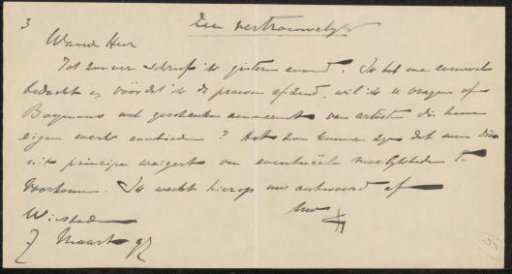 3
Zeer vertrouwelijk
Waarde Heer
Tot zoover schreef ik gisteren avond. Ik heb me evenwel
bedacht en vóórdat ik de proeven afzend, wil ik u vragen of
Boymans wel geschenken aanneemt van artisten die hun
eigen werk aanbieden? Het zou kunnen zijn dat men dit
uit principe weigert om eventueele moeilijkheden te
voorkomen. Ik wacht hierop uw antwoord af
Uw
Wiesbaden
7 Maart 97
(5)